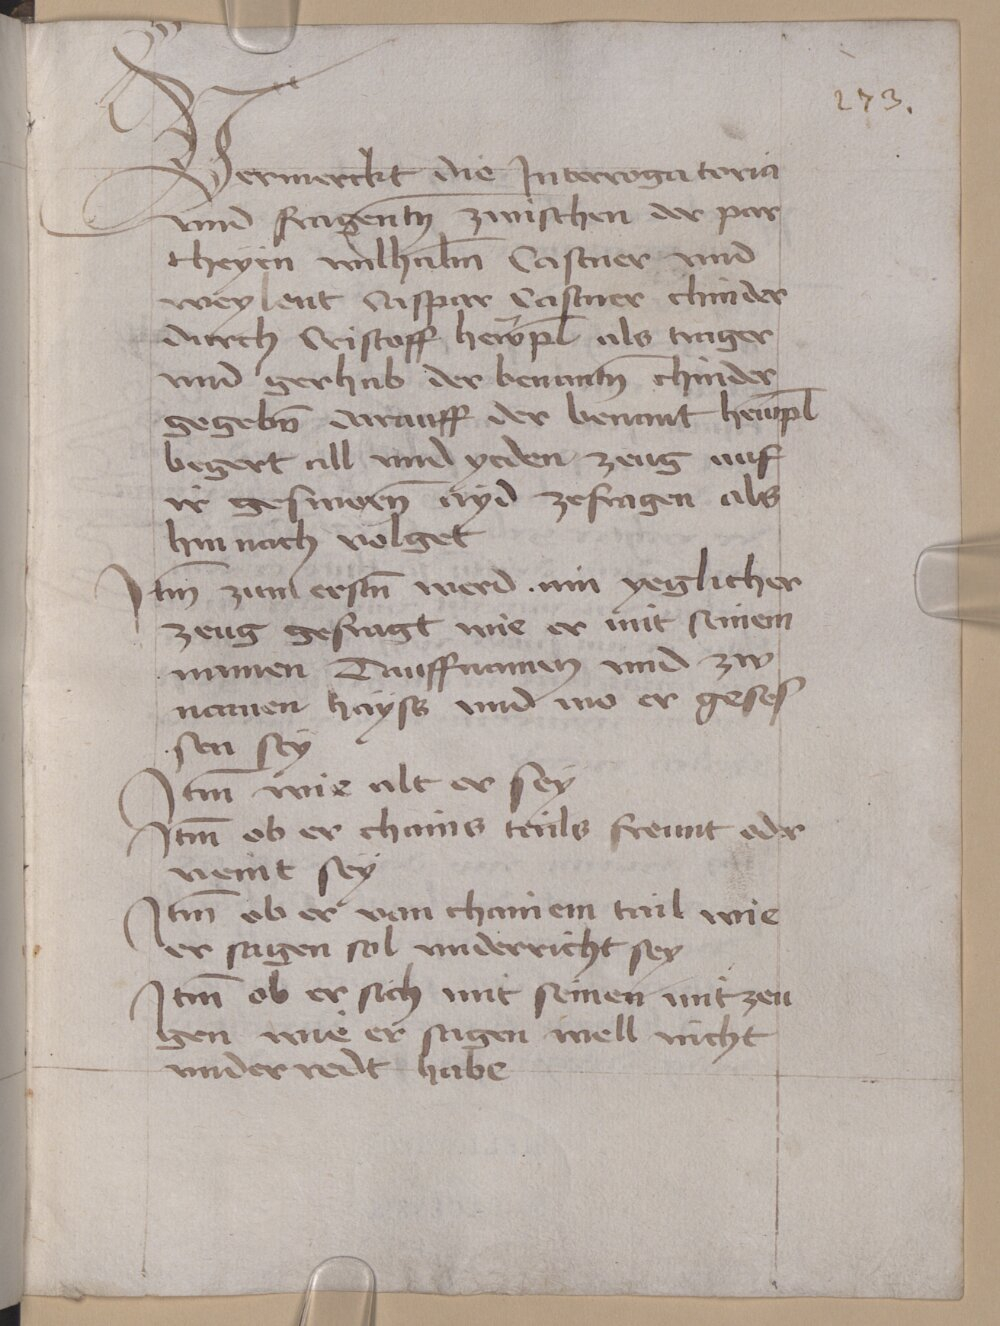 273.
Vermerckt die Interrogatoria
vnd fragentn zwischen der par
theyen wilhalm Castner vnd
weylent Caspar Castner chinder
durch Cristoff hewpl als trager
vnd gerhab der benantn chinder
gegebn darauff der benant hewpl
begert all vnd yeden zeug auf
ir gesworen ayd zefragen als
hinnach volget
Itm zum erstn werd ain yeglicher
zeug gefragt wie er mit seinem
namen Tauffnamen vnd zw
namen hayss vnd wo er geses
sen sey
Itm wie alt er sey
Itm ob er chains tails freunt oder
veint sey
Itm ob er von chainem tail wie
er sagen sol vnderricht sey
Itm ob er sich mit seinen mitzeu
gen wie er sagen well nicht
vnderredt habe